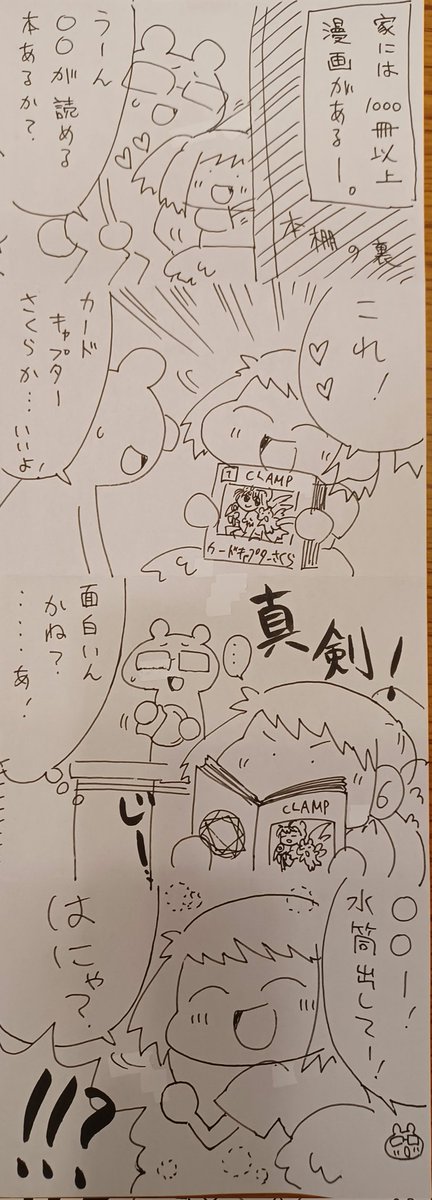 家には1000冊以上
漫画があるー。
本棚の裏
うーん
〇〇が読める
本あるか?
これ!
カード
キャプター
さくらか…いいよ!
1 CLAMP
カードキャプターさくら
真剣!
…
面白いん
かね?
……あ!
じーー
CLAMP
〇〇ー!
水筒出してー!
はにゃ?
!!!?